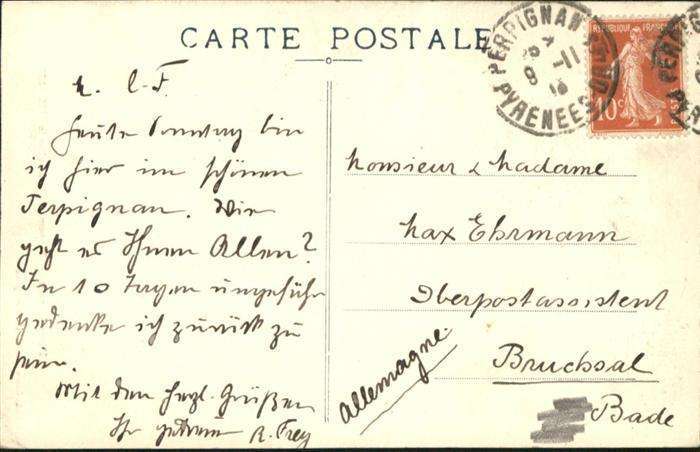 CARTE POSTALE
PERPIGNAN
PYRENEES
REPUBLIQUE FRANÇAISE
10c
M. L. F.
Heute Sonntag bin
ich hier im schönen
Perpignan. Wie
geht es Ihnen Allen?
In 10 Tagen ungefähr
gedenke ich zurück zu
sein.
Mit den herzl. Grüßen
Ihr getreuer R. Frey
Monsieur & Madame
Max Ehrmann
Oberpostassistent
Bruchsal
Allemagne.
Bade